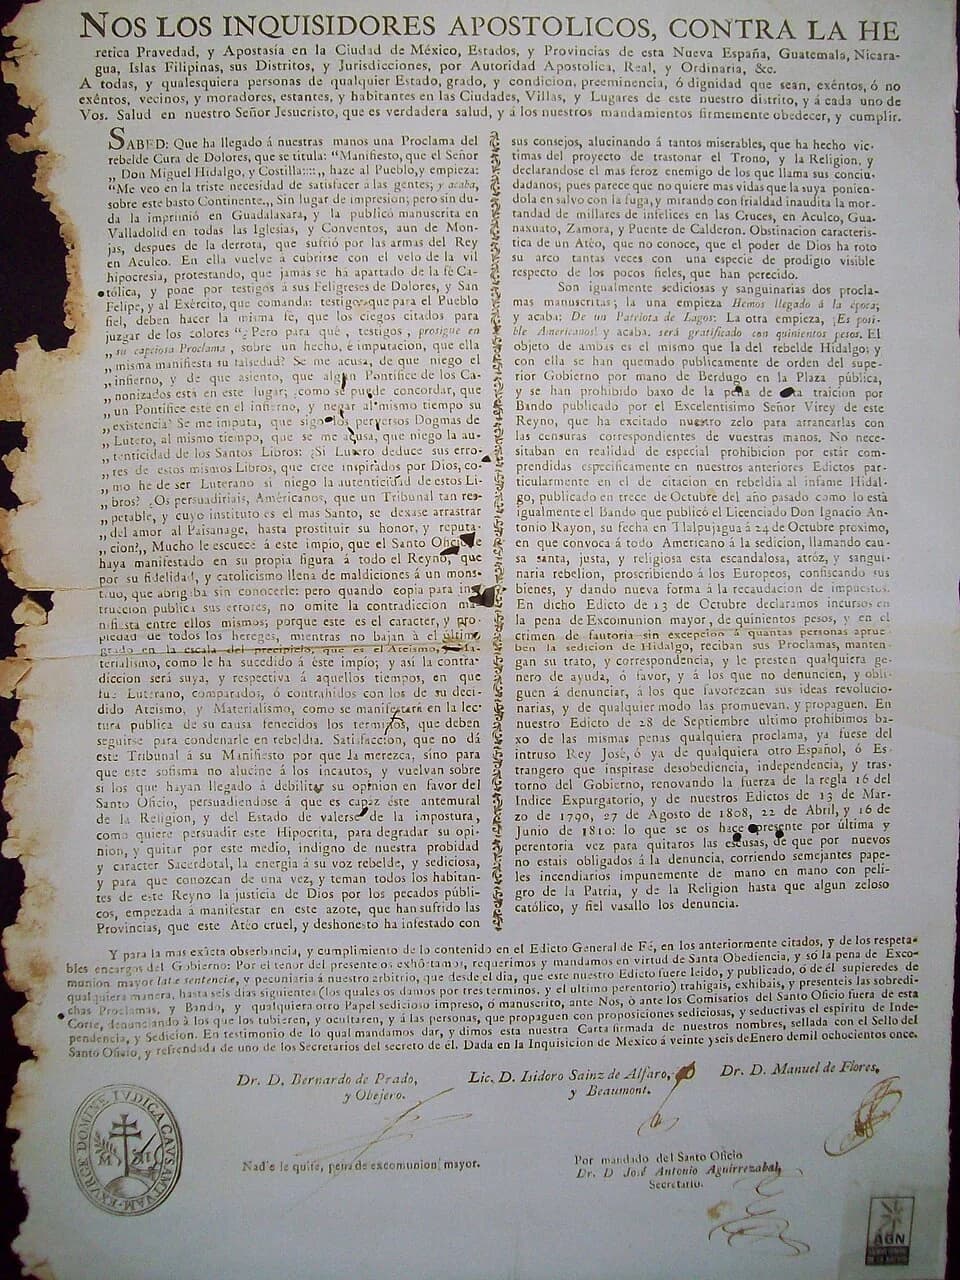 NOS LOS INQUISIDORES APOSTOLICOS, CONTRA LA HE
retica Pravedad, y Apostasía en la Ciudad de México, Estados, y Provincias de esta Nueva España, Guatemala, Nicara-
gua, Islas Filipinas, sus Distritos, y Jurisdicciones, por Autoridad Apostolica, Real, y Ordinaria, &c.
A todas, y qualesquiera personas de qualquier Estado, grado, y condicion, preeminencia, ó dignidad que sean, exéntos, ó no
exéntos, vecinos, y moradores, estantes, y habitantes en las Ciudades, Villas, y Lugares de este nuestro distrito, y á cada uno de
Vos. Salud en nuestro Señor Jesucristo, que es verdadera salud, y á los nuestros mandamientos firmemente obedecer, y cumplir.
SABED: Que ha llegado á nuestras manos una Proclama del
rebelde Cura de Dolores, que se titula: "Manifiesto, que el Señor
„ Don Miguel Hidalgo, y Costilla::::„ haze al Pueblo, y empieza:
"Me veo en la triste necesidad de satisfacer á las gentes; y acaba,
sobre este basto Continente.„ Sin lugar de impresion; pero sin du-
da la imprimió en Guadalaxara, y la publicó manuscrita en
Valladolid en todas las Iglesias, y Conventos, aun de Mon-
jas, despues de la derrota, que sufrió por las armas del Rey
en Aculco. En ella vuelve á cubrirse con el velo de la vil
hipocresia, protestando, que jamas se há apartado de la fé Ca-
tólica, y pone por testigos á sus Feligreses de Dolores, y San
Felipe, y al Exército, que comanda: testigos que para el Pueblo
fiel, deben hacer la misma fé, que los ciegos citados para
juzgar de los colores "¿Pero para qué, testigos, prosigue en
„ su capciosa Proclama, sobre un hecho, é imputacion, que ella
„ misma manifiesta su falsedad? Se me acusa, de que niego el
„ infierno, y de que asiento, que algun Pontifice de los Ca-
„ nonizados está en este lugar; ¿como se puede concordar, que
„ un Pontifice esté en el infierno, y negar al mismo tiempo su
„ existencia? Se me imputa, que sigo los perversos Dogmas de
„ Lutero, al mismo tiempo, que se me acusa, que niego la au-
„ tenticidad de los Santos Libros: ¿Si Lutero deduce sus erro-
„ res de estos mismos Libros, que cree inspirados por Dios, co-
„ mo he de ser Luterano si niego la autenticidad de estos Li-
„ bros? ¿Os persuadiriais, Américanos, que un Tribunal tan res-
„ petable, y cuyo instituto es el mas Santo, se dexase arrastrar
„ del amor al Paisanage, hasta prostituir su honor, y reputa-
„ cion?„ Mucho le escuece á este impío, que el Santo Oficio le
haya manifestado en su propia figura á todo el Reyno, que
por su fidelidad, y catolicismo llena de maldiciones á un mons-
truo, que abrigaba sin conocerle: pero quando copia para ins-
truccion publica sus errores, no omite la contradiccion ma-
nifiesta entre ellos mismos; porque este es el caracter, y pro-
piedad de todos los hereges, mientras no bajan á el último
grado en la escala del precipicio, que es el Ateismo, y Ma-
terialismo, como le ha sucedido á éste impio; y así la contra-
diccion será suya, y respectiva á aquellos tiempos, en que
fué Luterano, comparados, ó contrahidos con los de su deci-
dido Ateismo, y Materialismo, como se manifestará en la lec-
tura publica de su causa fenecidos los terminos, que deben
seguirse para condenarle en rebeldia. Satisfaccion, que no dá
este Tribunal á su Manifiesto por que la merezca, sino para
que este sofisma no alucine á los incautos, y vuelvan sobre
si los que hayan llegado á debilitar su opinion en favor del
Santo Oficio, persuadiendose á que es capáz éste antemural
de la Religion, y del Estado de valerse de la impostura,
como quiere persuadir este Hipocrita, para degradar su opi-
nion, y quitar por este medio, indigno de nuestra probidad
y caracter Sacerdotal, la energía á su voz rebelde, y sediciosa,
y para que conozcan de una vez, y teman todos los habitan-
tes de este Reyno la justicia de Dios por los pecados públi-
cos, empezada á manifestar en este azote, que han sufrido las
Provincias, que este Atéo cruel, y deshonesto ha infestado con
sus consejos, alucinando á tantos miserables, que ha hecho vic-
timas del proyecto de trastonar el Trono, y la Religion, y
declarandose el mas feroz enemigo de los que llama sus conciu-
dadanos; pues parece que no quiere mas vidas que la suya ponien-
dola en salvo con la fuga, y mirando con frialdad inaudita la mor-
tandad de millares de infelices en las Cruces, en Aculco, Gua-
naxuato, Zamora, y Puente de Calderon. Obstinacion caracteris-
tica de un Atéo, que no conoce, que el poder de Dios ha roto
su arco tantas veces con una especie de prodigio visible
respecto de los pocos fieles, que han perecido.
Son igualmente sediciosas y sanguinarias dos procla-
mas manuscritas; la una empieza Hemos llegado á la época;
y acaba: De un Patriota de Lagos: La otra empieza, ¡Es posi-
ble Americanos! y acaba. será gratificado con quinientos pesos. El
objeto de ambas es el mismo que la del rebelde Hidalgo; y
con ella se han quemado publicamente de orden del supe-
rior Gobierno por mano de Berdugo en la Plaza pública,
y se han prohibido baxo de la pena de alta traicion por
Bando publicado por el Excelentisimo Señor Virey de este
Reyno, que ha excitado nuestro zelo para arrancarlas con
las censuras correspondientes de vuestras manos. No nece-
sitaban en realidad de especial prohibicion por estár com-
prendidas especificamente en nuestros anteriores Edictos par-
ticularmente en el de citacion en rebeldia al infame Hidal-
go, publicado en trece de Octubre del año pasado como lo está
igualmente el Bando que publicó el Licenciado Don Ignacio An-
tonio Rayon, su fecha en Tlalpujagua á 24 de Octubre proximo,
en que convoca á todo Americano á la sedicion, llamando cau-
sa santa, justa, y religiosa esta escandalosa, atróz, y sangui-
naria rebelion, proscribiendo á los Europeos, confiscando sus
bienes, y dando nueva forma á la recaudacion de impuestos.
En dicho Edicto de 13 de Octubre declaramos incursos en
la pena de Excomunion mayor, de quinientos pesos, y en el
crimen de fautoria sin excepcion á quantas personas aprue-
ben la sedicion de Hidalgo, reciban sus Proclamas, manten-
gan su trato, y correspondencia, y le presten qualquiera ge-
nero de ayuda, ó favor, y á los que no denuncien, y obli-
guen á denunciar, á los que favorezcan sus ideas revolucio-
narias, y de qualquier modo las promuevan, y propaguen. En
nuestro Edicto de 28 de Septiembre ultimo prohibimos ba-
xo de las mismas penas qualquiera proclama, ya fuese del
intruso Rey José, ó ya de qualquiera otro Español, ó Es-
trangero que inspirase desobediencia, independencia, y tras-
torno del Gobierno, renovando la fuerza de la regla 16 del
Indice Expurgatorio, y de nuestros Edictos de 13 de Mar-
zo de 1790, 27 de Agosto de 1808, 22 de Abril, y 16 de
Junio de 1810: lo que se os hace presente por última y
perentoria vez para quitaros las escusas, de que por nuevos
no estais obligados á la denuncia, corriendo semejantes pape-
les incendiarios impunemente de mano en mano con peli-
gro de la Patria, y de la Religion hasta que algun zeloso
católico, y fiel vasallo los denuncia.
Y para la mas exácta obserbancia, y cumplimiento de lo contenido en el Edicto General de Fé, en los anteriormente citados, y de los respeta-
bles encargos del Gobierno: Por el tenor del presente os exhórtamos, requerimos y mandamos en virtud de Santa Obediencia, y só la pena de Exco-
munion mayor latæ sententiæ, y pecuniaria á nuestro arbitrio, que desde el dia, que este nuestro Edicto fuere leído, y publicado, ó de él supieredes de
qualquiera manera, hasta seis dias siguientes (los quales os damos por tres terminos, y el ultimo perentorio) trahigais, exhibais, y presenteis las sobredi-
chas Proclamas, y Bando, y qualquiera otro Papel sedicioso impreso, ó manuscrito, ante Nos, ó ante los Comisarios del Santo Oficio fuera de esta
Corte, denunciando á los que los tubieren, y ocultaren, y á las personas, que propaguen con proposiciones sediciosas, y seductivas el espiritu de Inde-
pendencia, y Sedicion. En testimonio de lo qual mandamos dar, y dimos esta nuestra Carta firmada de nuestros nombres, sellada con el Sello del
Santo Oficio, y refrendada de uno de los Secretarios del secreto de él. Dada en la Inquisicion de Mexico á veinte y seis de Enero de mil ochocientos once.
Dr. D. Bernardo de Prado,
y Obejero.
Lic. D. Isidoro Sainz de Alfaro,
y Beaumont.
Dr. D. Manuel de Flores,
EXURGE DOMINE IVDICA CAVSAM TVAM
Nadie le quite, pena de excomunion mayor.
Por mandado del Santo Oficio
Dr. D José Antonio Aguirrezabal,
Secretario.
AGN